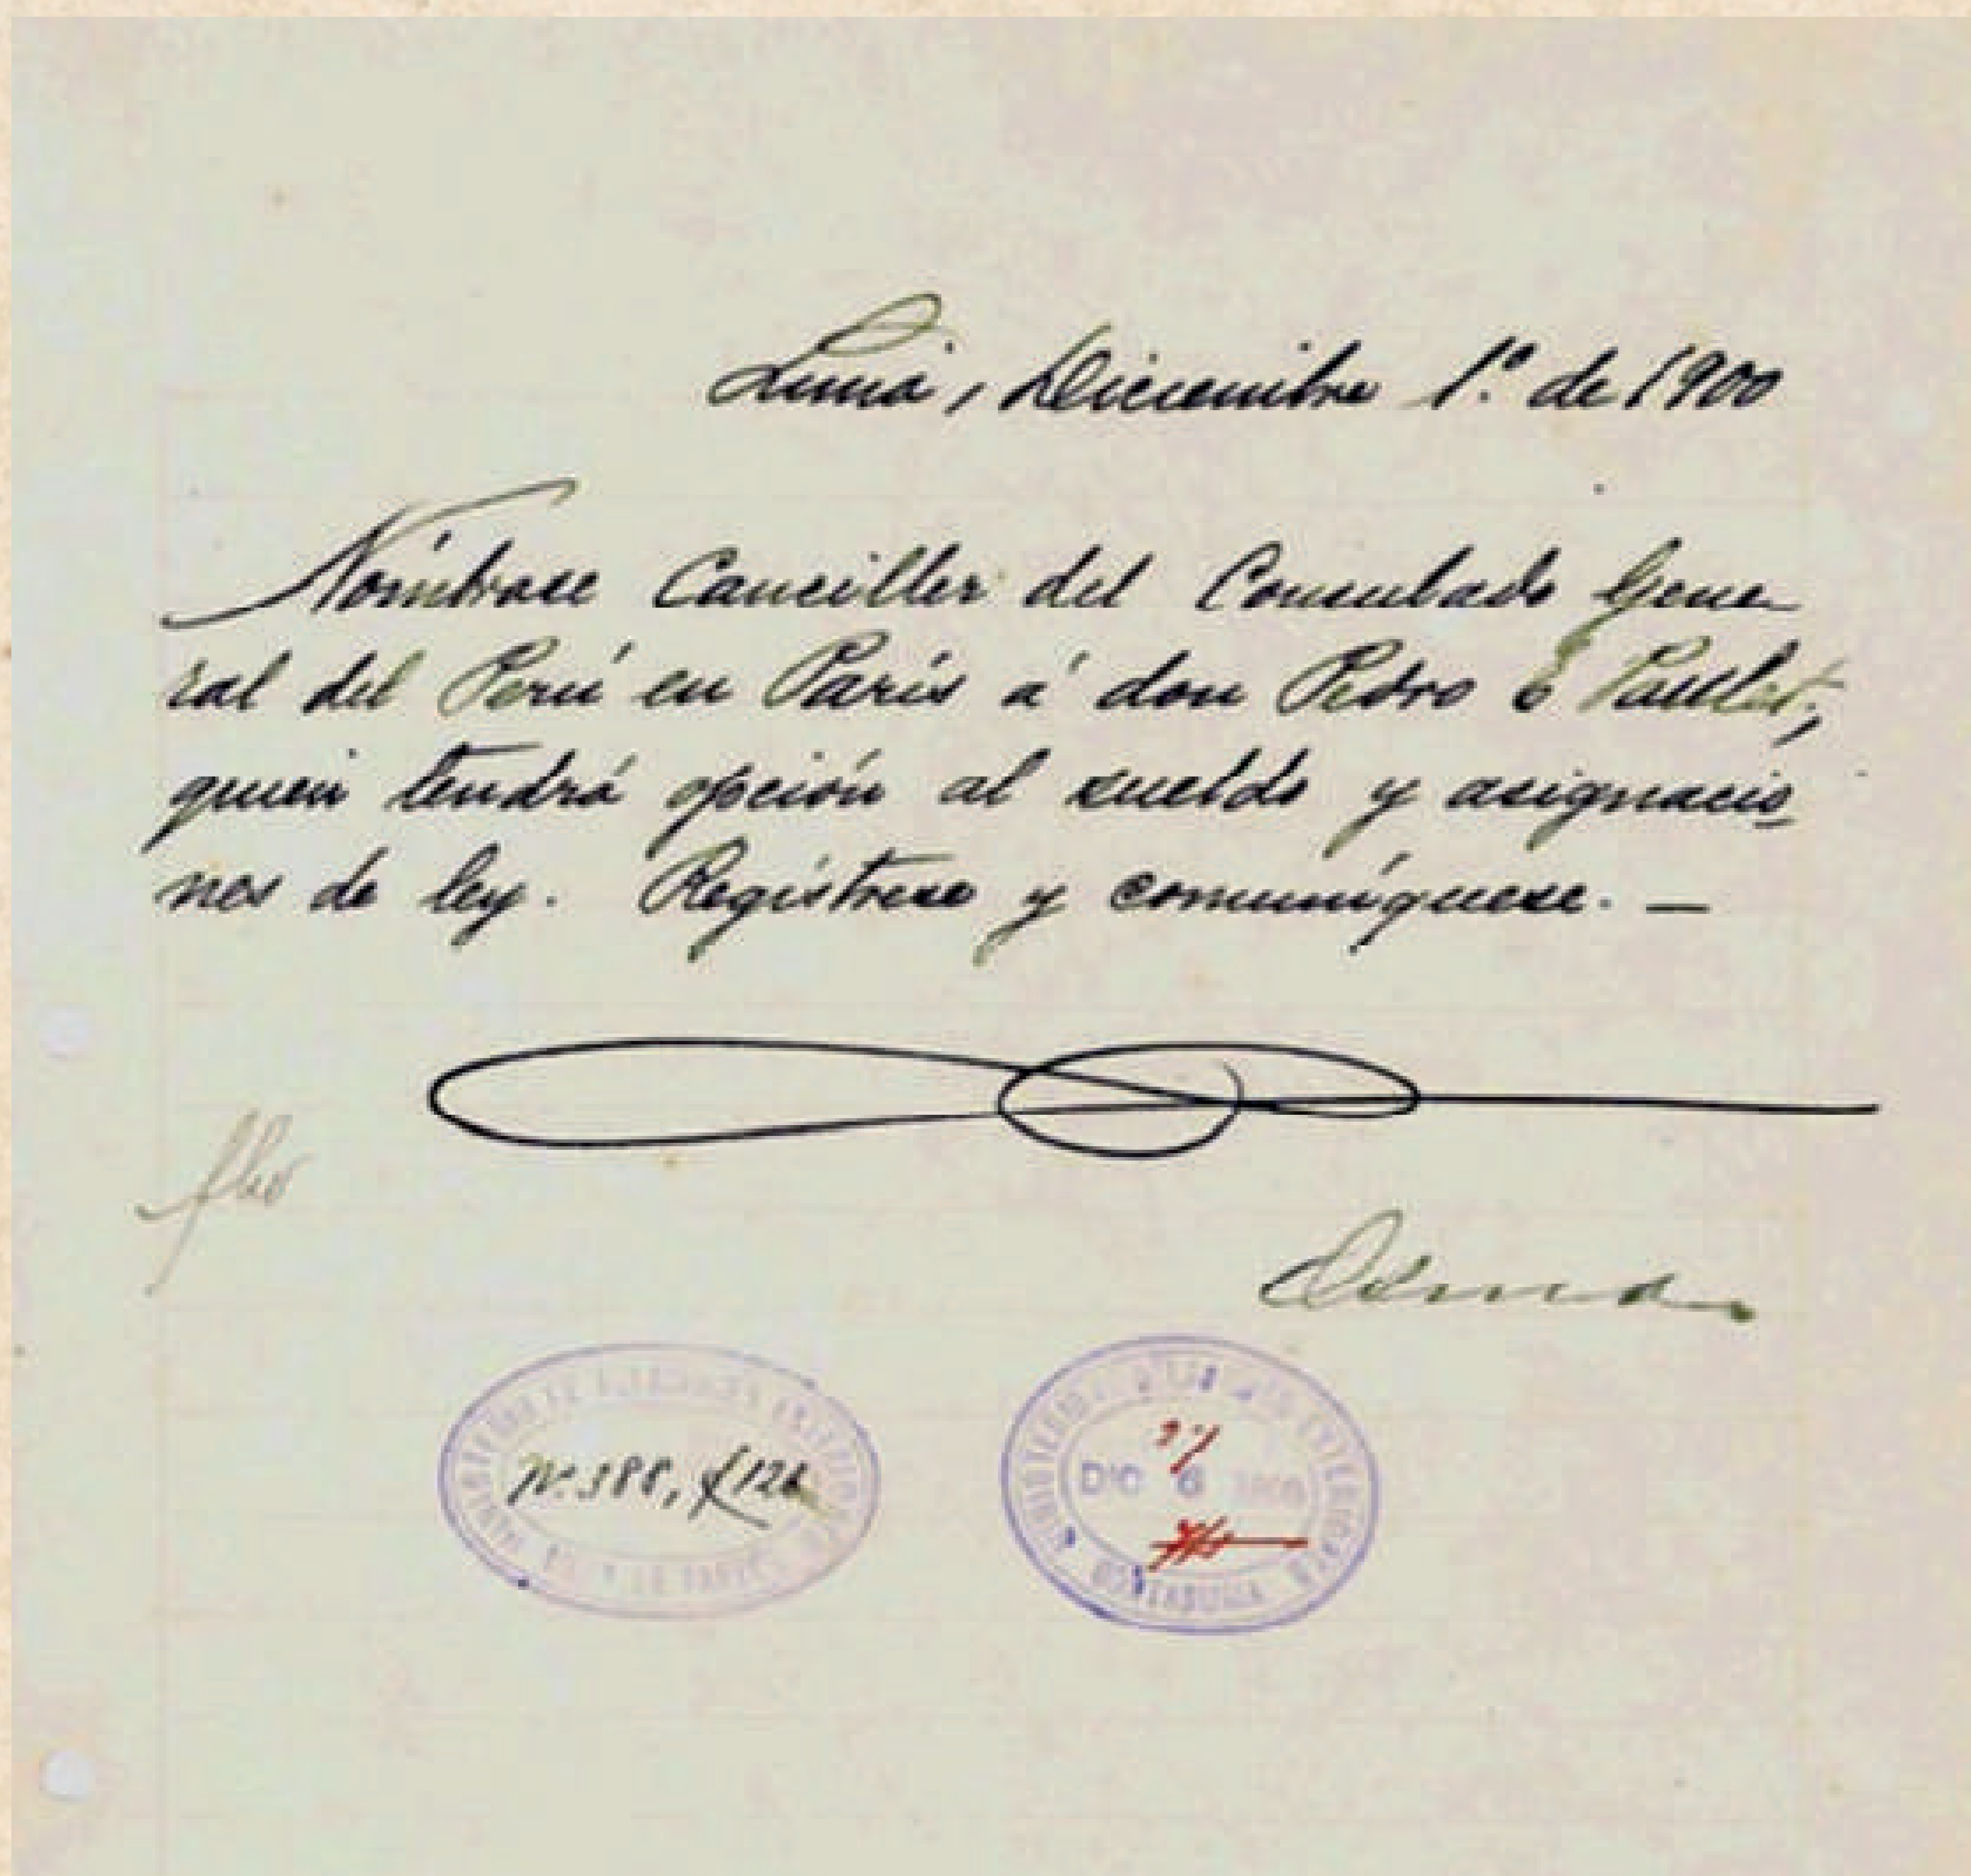 Lima, Diciembre 1.º de 1900
Nómbrase Canciller del Consulado Gene-
ral del Perú en Paris á don Pedro E Paulet,
quien tendrá opción al sueldo y asignacio-
nes de ley. Regístrese y comuníquese. —
Osma
N.º 388, f 126
DIC 6 1900